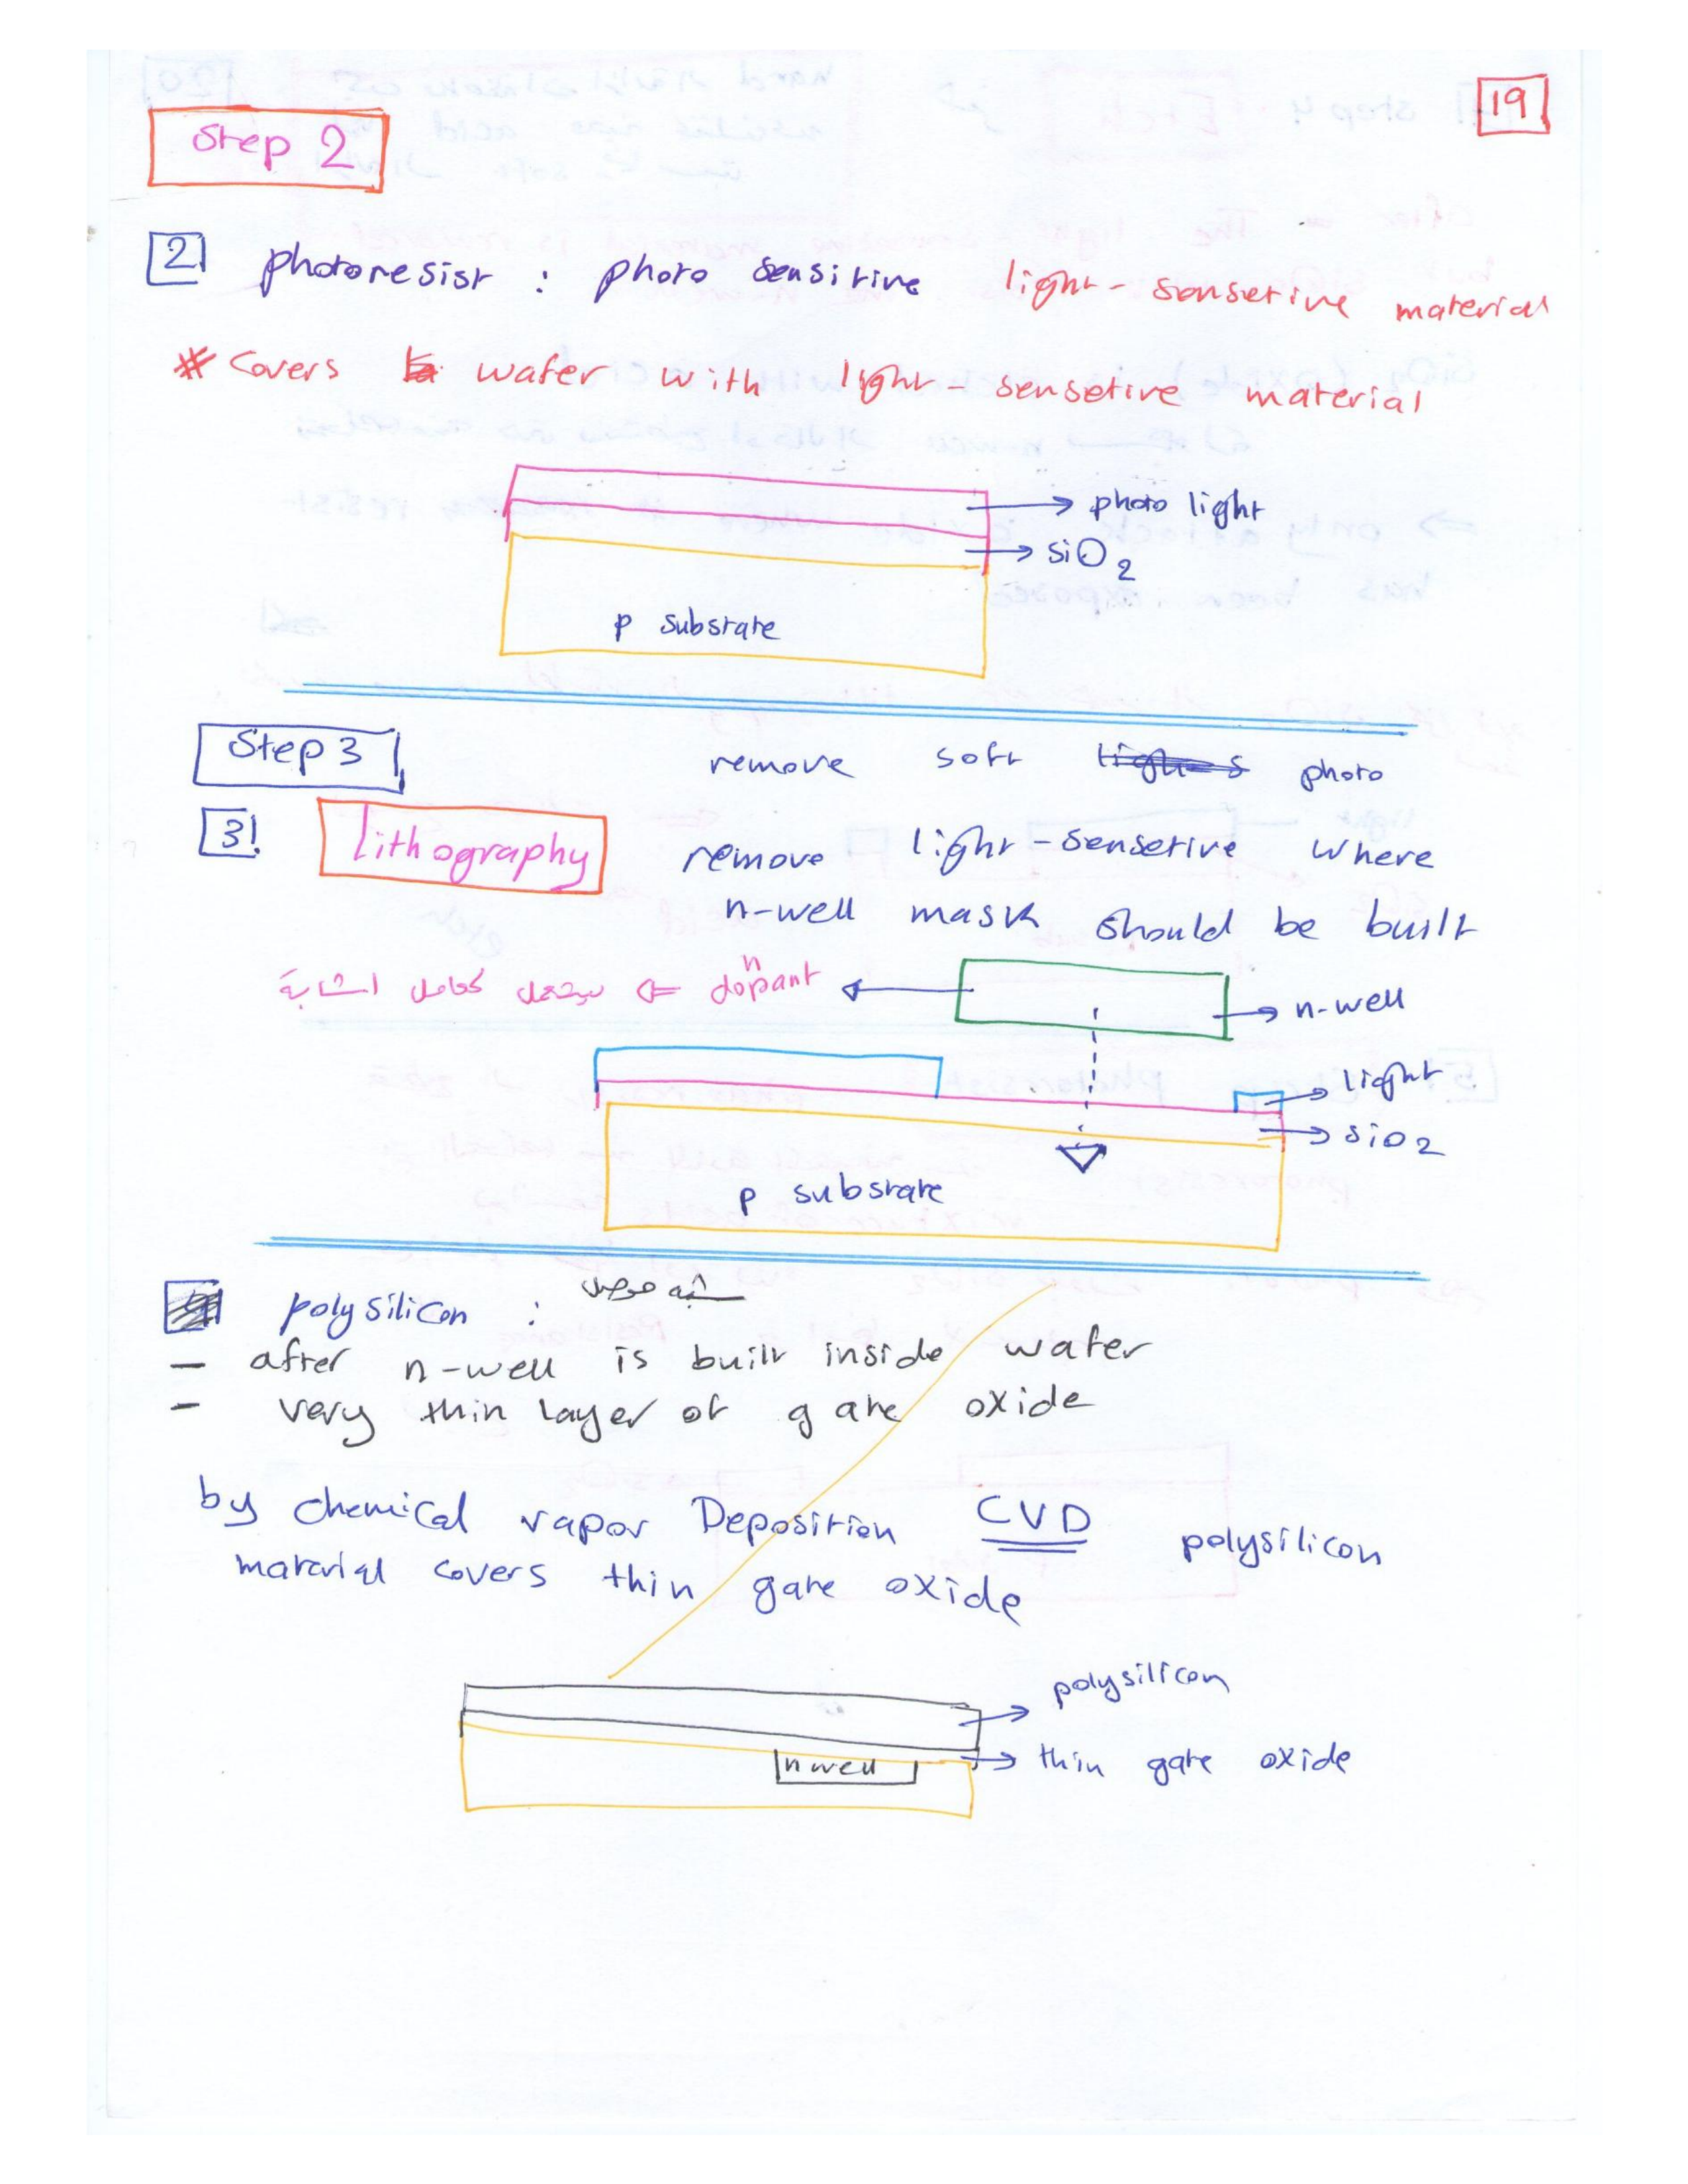 19
Step 2
2 photoresist : photo sensitive light-sensetive material
* Covers wafer with light-sensetive material
photo light
SiO2
p substrate
Step 3
remove soft photo
3! lithography remove light-sensetive where
n-well mask should be built
n
dopant ⇐ سيعمل كعامل اشابة
n-well
light
SiO2
p substrate
polysilicon : شبه موصل
- after n-well is built inside wafer
- very thin layer of gate oxide
by chemical vapor Deposition CVD polysilicon
material covers thin gate oxide
polysilicon
thin gate oxide
n well